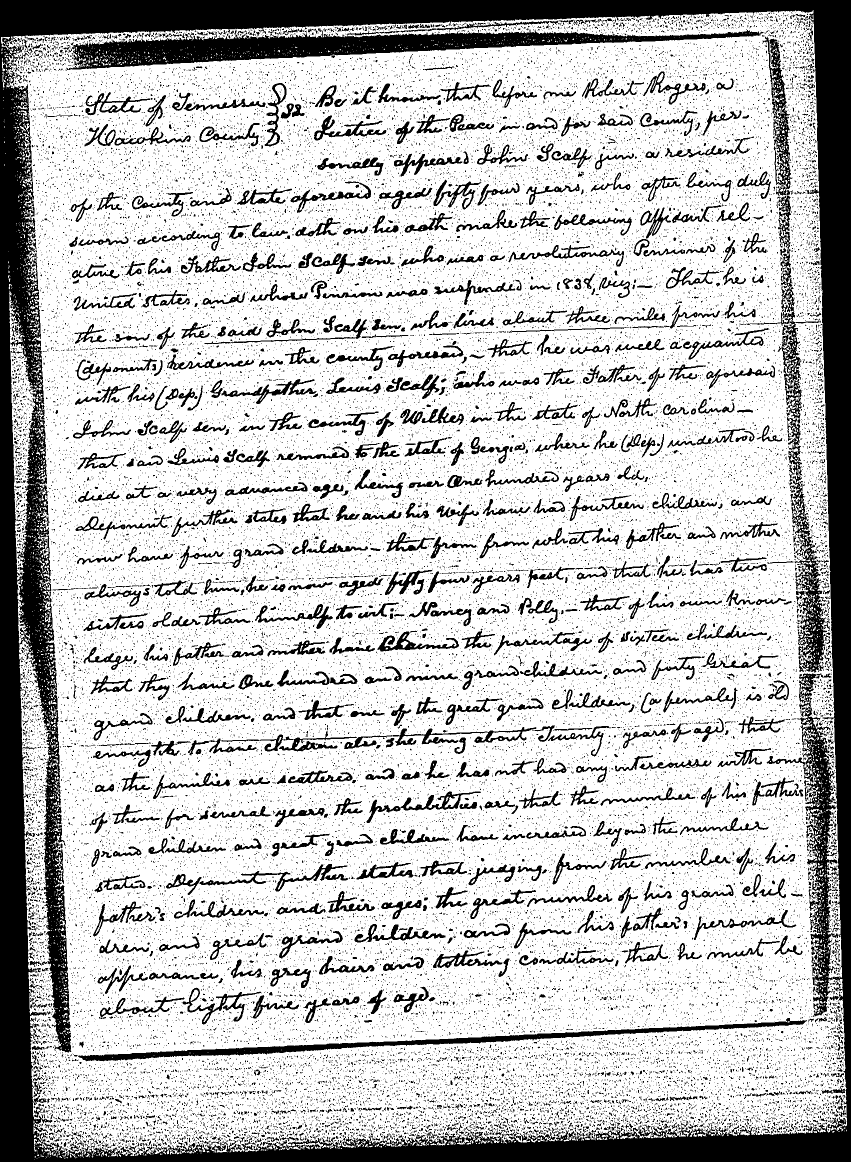 State of Tennessee } SS Be it known, that before me Robert Rogers, a
Hawkins County } Justice of the Peace in and for said County, per-
sonally appeared John Scalf jun. a resident
of the County and State aforesaid aged fifty four years, who after being duly
sworn according to law, doth on his oath make the following Affidavit rel-
ative to his Father John Scalf sen. who was a revolutionary Pensioner of the
United States, and whose Pension was suspended in 1838, viz:— That he is
the son of the said John Scalf sen. who lives about three miles from his
(deponents) residence in the county aforesaid,— that he was well acquainted
with his (Dep.) Grandfather, Lewis Scalf; who was the Father of the aforesaid
John Scalf sen, in the county of Wilkes in the state of North Carolina—
that said Lewis Scalf removed to the state of Georgia, where he (Dep.) understood he
died at a very advanced age, being over One hundred years old,
Deponent further states that he and his Wife have had fourteen children, and
now have four grand children— that from from what his father and mother
always told him, he is now aged fifty four years past, and that he has two
sisters older than himself to wit;— Nancy and Polly,— that of his own Know-
ledge, his father and mother have Claimed the parentage of sixteen children,
that they have One hundred and nine grandchildren, and forty Great
grand children, and that one of the great grand children, (a female) is old
enough to have children also, she being about Twenty years of age, that
as the families are scattered, and as he has not had any intercourse with some
of them for several years, the probabilities are, that the number of his father's
grand children and great grand children have increased beyond the number
stated. Deponent further states that judging from the number of his
father's children, and their ages; the great number of his grand chil-
dren, and great grand children; and from his father's personal
appearance, his grey hairs and tottering condition, that he must be
about Eighty five years of age.